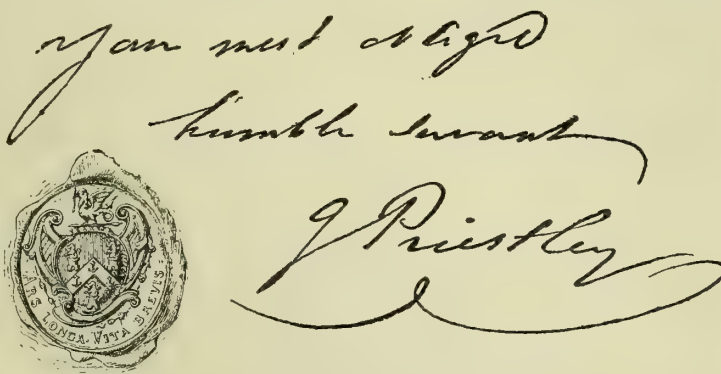 Your most obliged
humble servant
J Priestley
ARS LONGA. VITA BREVIS.